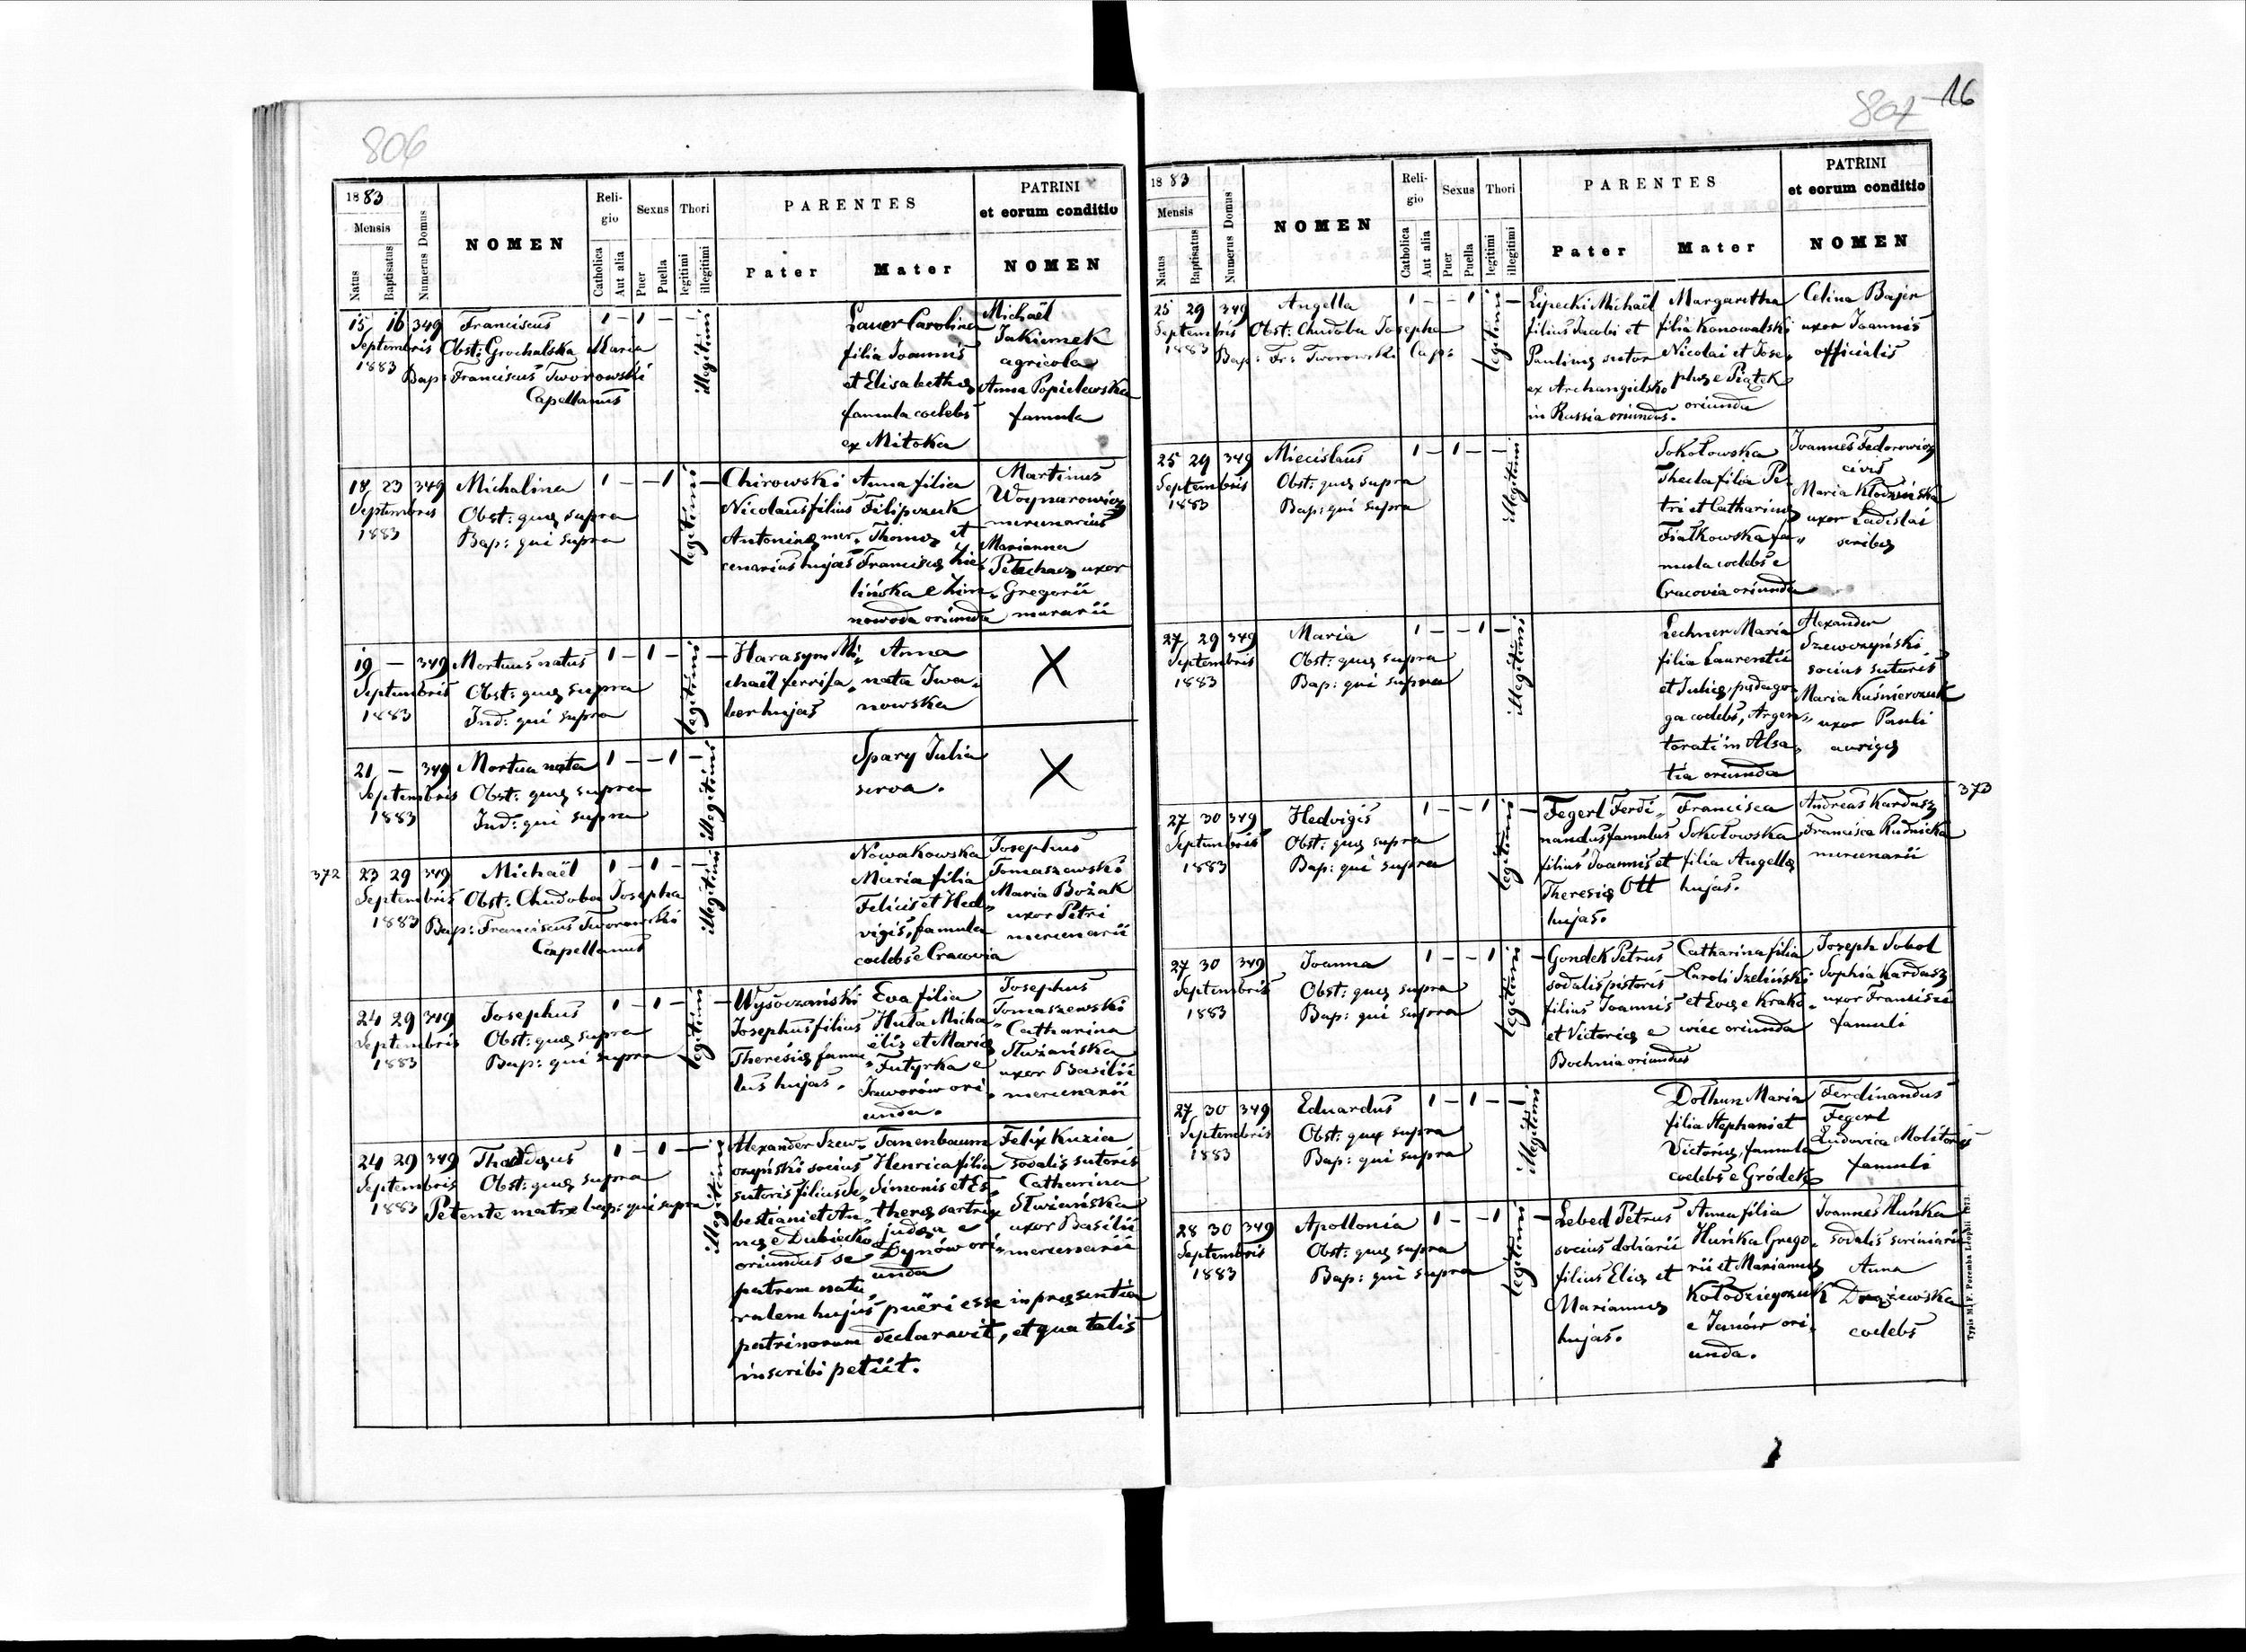 806
1883
Mensis
Natus
Baptisatus
Numerus Domus
NOMEN
Reli-
gio
Catholica
Aut alia
Sexus
Puer
Puella
Thori
legitimi
illegitimi
PARENTES
Pater
Mater
PATRINI
et eorum conditio
NOMEN
15 16 349 Franciscus 1 – 1 – –
Septembris Obst: Grochalska Maria
1883 Bap: Franciscus Tworowski
Capellanus
illegitimi
Lauer Carolina
filia Joannis
et Elisabethæ
famula coelebs
ex Mitoka
Michaël
Jakiemek
agricola
Anna Popielewska
famula
18 23 349 Michalina 1 – – 1 –
Septembris Obst: quæ supra
1883 Bap: qui supra
legitimi
Chirowski
Nicolaus filius
Antoninæ mer-
cenarius hujas
Anna filia
Filipczuk
Thomæ et
Franciscæ Zie-
lińska e Zim-
nowoda oriunda
Martinus
Woynarowicz
mercenarius
Marianna
Petechacz uxor
Gregorii
murarii
19 – 349 Mortuus natus 1 – 1 – –
Septembris Obst: quæ supra
1883 Ind: qui supra
legitimi
Harasym Mi-
chaël ferrifa-
ber hujas
Anna
nata Iwa-
nowska
X
21 – 349 Mortua nata 1 – – 1 –
Septembris Obst: quæ supra
1883 Ind: qui supra
illegitimi
Spary Julia
serva.
X
372
23 29 349 Michaël 1 – 1 – –
Septembris Obst: Chudoba Josepha
1883 Bap: Franciscus Tworowski
Capellanus
illegitimi
Nowakowska
Maria filia
Felicis et Hed-
vigis, famula
coelebs e Cracovia
Josephus
Tomaszewski
Maria Bożak
uxor Petri
mercenarii
24 29 349 Josephus 1 – 1 – –
Septembris Obst: quæ supra
1883 Bap: qui supra
legitimi
Wysoczański
Josephus filius
Theresiæ famu-
lus hujas.
Eva filia
Huta Micha-
ëlis et Mariæ
Futyrka e
Jaworów ori-
unda.
Josephus
Tomaszewski
Catharina
Stuziańska
uxor Basilii
mercenarii
24 29 349 Thaddæus 1 – 1 – –
Septembris Obst: quæ supra
1883 Petente matre bap: qui supra
illegitimi
Alexander Szew-
czyński socius
sutoris filius Se-
bestiani et An-
næ e Dubiecko
oriundus se
patrem natu-
ralem hujus pueri esse in præsentia
patrinorum declaravit, et qua talis
inscribi petiit.
Tanenbaum
Henrica filia
Simonis et Es-
theræ sartrix
judæa e
Dynów ori-
unda
Felix Kuzia
sodalis sutoris
Catharina
Stuziańska
uxor Basilii
mercenarii
807 16
1883
Mensis
Natus
Baptisatus
Numerus Domus
NOMEN
Reli-
gio
Catholica
Aut alia
Sexus
Puer
Puella
Thori
legitimi
illegitimi
PARENTES
Pater
Mater
PATRINI
et eorum conditio
NOMEN
25 29 349 Angella 1 – – 1 –
Septembris Obst: Chudoba Josepha
1883 Bap: Fr: Tworowski Cap:
legitimi
Lipecki Michaël
filius Jacobi et
Paulinæ sutor
ex Archangielsko
in Russia oriundus.
Margaretha
filia Konowalski
Nicolai et Jose-
phæ e Piątek
oriunda
Celina Bajer
uxor Joannis
officialis
25 29 349 Miecislaus 1 – 1 – –
Septembris Obst: quæ supra
1883 Bap: qui supra
illegitimi
Sokołowska
Thecla filia Pe-
tri et Catharinæ
Fiałkowska fa-
mula coelebs e
Cracovia oriunda
Joannes Fedorowicz
civis
Maria Kłodzińska
uxor Ladislai
scribæ
27 29 349 Maria 1 – – 1 –
Septembris Obst: quæ supra
1883 Bap: qui supra
illegitimi
Lechner Maria
filia Laurentii
et Juliæ, pædago-
ga coelebs, Argen-
torati in Alsa-
tia oriunda
Alexander
Szewczyński
socius sutoris
Maria Kuśnierczuk
uxor Pauli
aurigæ
373
27 30 349 Hedvigis 1 – – 1 –
Septembris Obst: quæ supra
1883 Bap: qui supra
legitimi
Fegerl Ferdi-
nandus famulus
filius Joannis et
Theresiæ Ott
hujas.
Francisca
Sokołowska
filia Angellæ
hujas.
Andreas Kardasz
Francisca Rudnicka
mercenarii
27 30 349 Joanna 1 – – 1 –
Septembris Obst: quæ supra
1883 Bap: qui supra
legitimi
Gondek Petrus
sodalis pistoris
filius Joannis
et Victoriæ e
Bochnia oriundus
Catharina filia
Caroli Szeliński
et Evæ e Krako-
wiec oriunda
Joseph Sokol
Sophia Kardasz
uxor Francisci
famuli
27 30 349 Eduardus 1 – 1 – –
Septembris Obst: quæ supra
1883 Bap: qui supra
illegitimi
Dolhun Maria
filia Stephani et
Victoriæ, famula
coelebs e Gródek
Ferdinandus
Fegerl
Ludovica Molitoris
famuli
28 30 349 Apollonia 1 – – 1 –
Septembris Obst: quæ supra
1883 Bap: qui supra
legitimi
Lebed Petrus
socius doliarii
filius Eliæ et
Mariannæ
hujas.
Anna filia
Huńka Grego-
rii et Mariannæ
Kołodziejczuk
e Janów ori-
unda.
Joannes Huńka
sodalis scriniarii
Anna
Drążewska
coelebs
Typis M. F. Poremba Leopoli 1873.